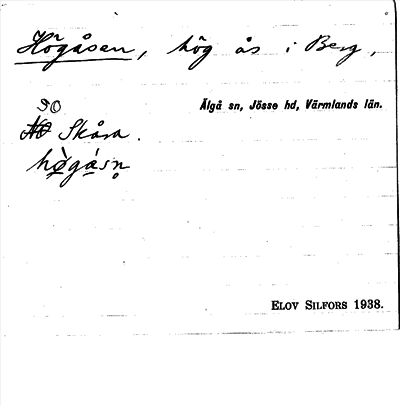 Högåsen, hög ås i Berg,
Älgå sn, Jösse hd, Värmlands län.
SO
Skåra.
hø̀gásn̥
ELOV SILFORS 1938.